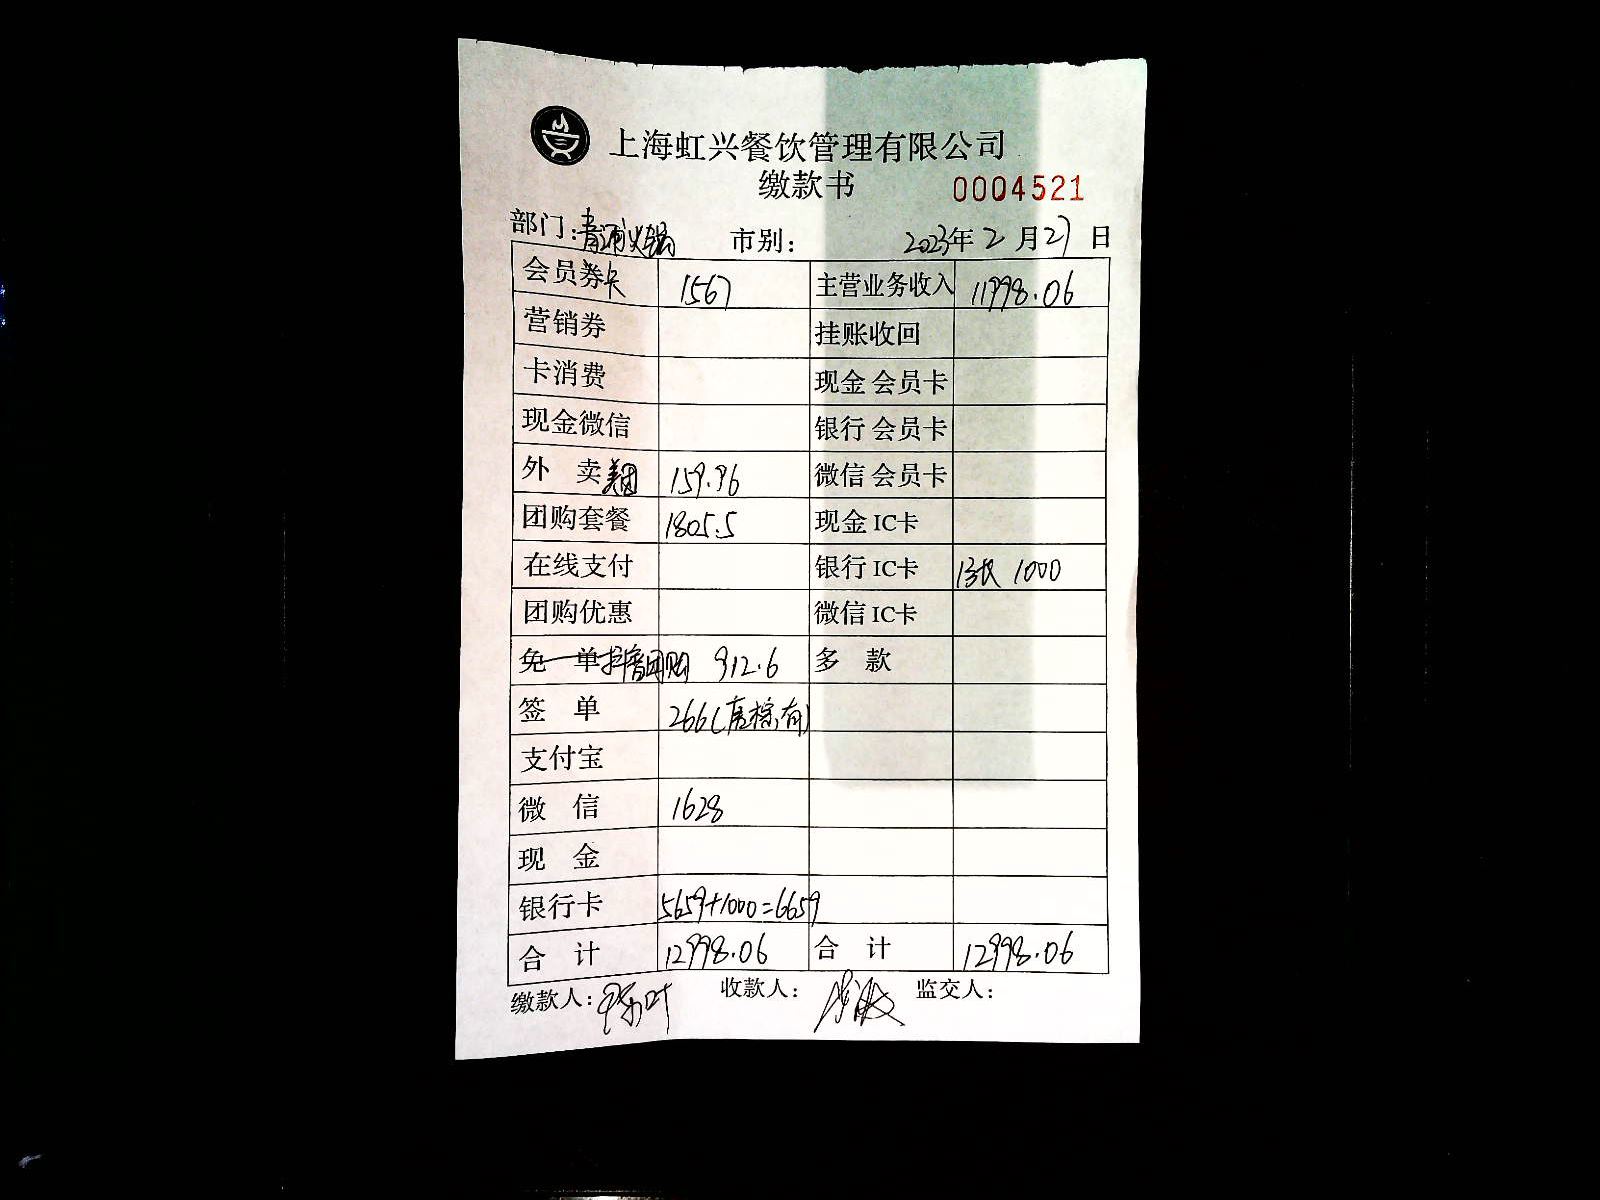 上海虹兴餐饮管理有限公司
缴款书 0004521
部门：青浦火锅 市别： 2023年 2 月 27 日
会员券卡 1567 主营业务收入 11998.06
营销券 挂账收回
卡消费 现金 会员卡
现金微信 银行 会员卡
外 卖 美团 159.96 微信 会员卡
团购套餐 1805.5 现金 IC卡
在线支付 银行 IC卡 1张 1000
团购优惠 微信 IC卡
免 单 抖音团购 912.6 多 款
签 单 266
支付宝
微 信 1628
现 金
银行卡 5659+1000=6659
合 计 12998.06 合 计 12998.06
缴款人： 收款人： 监交人：